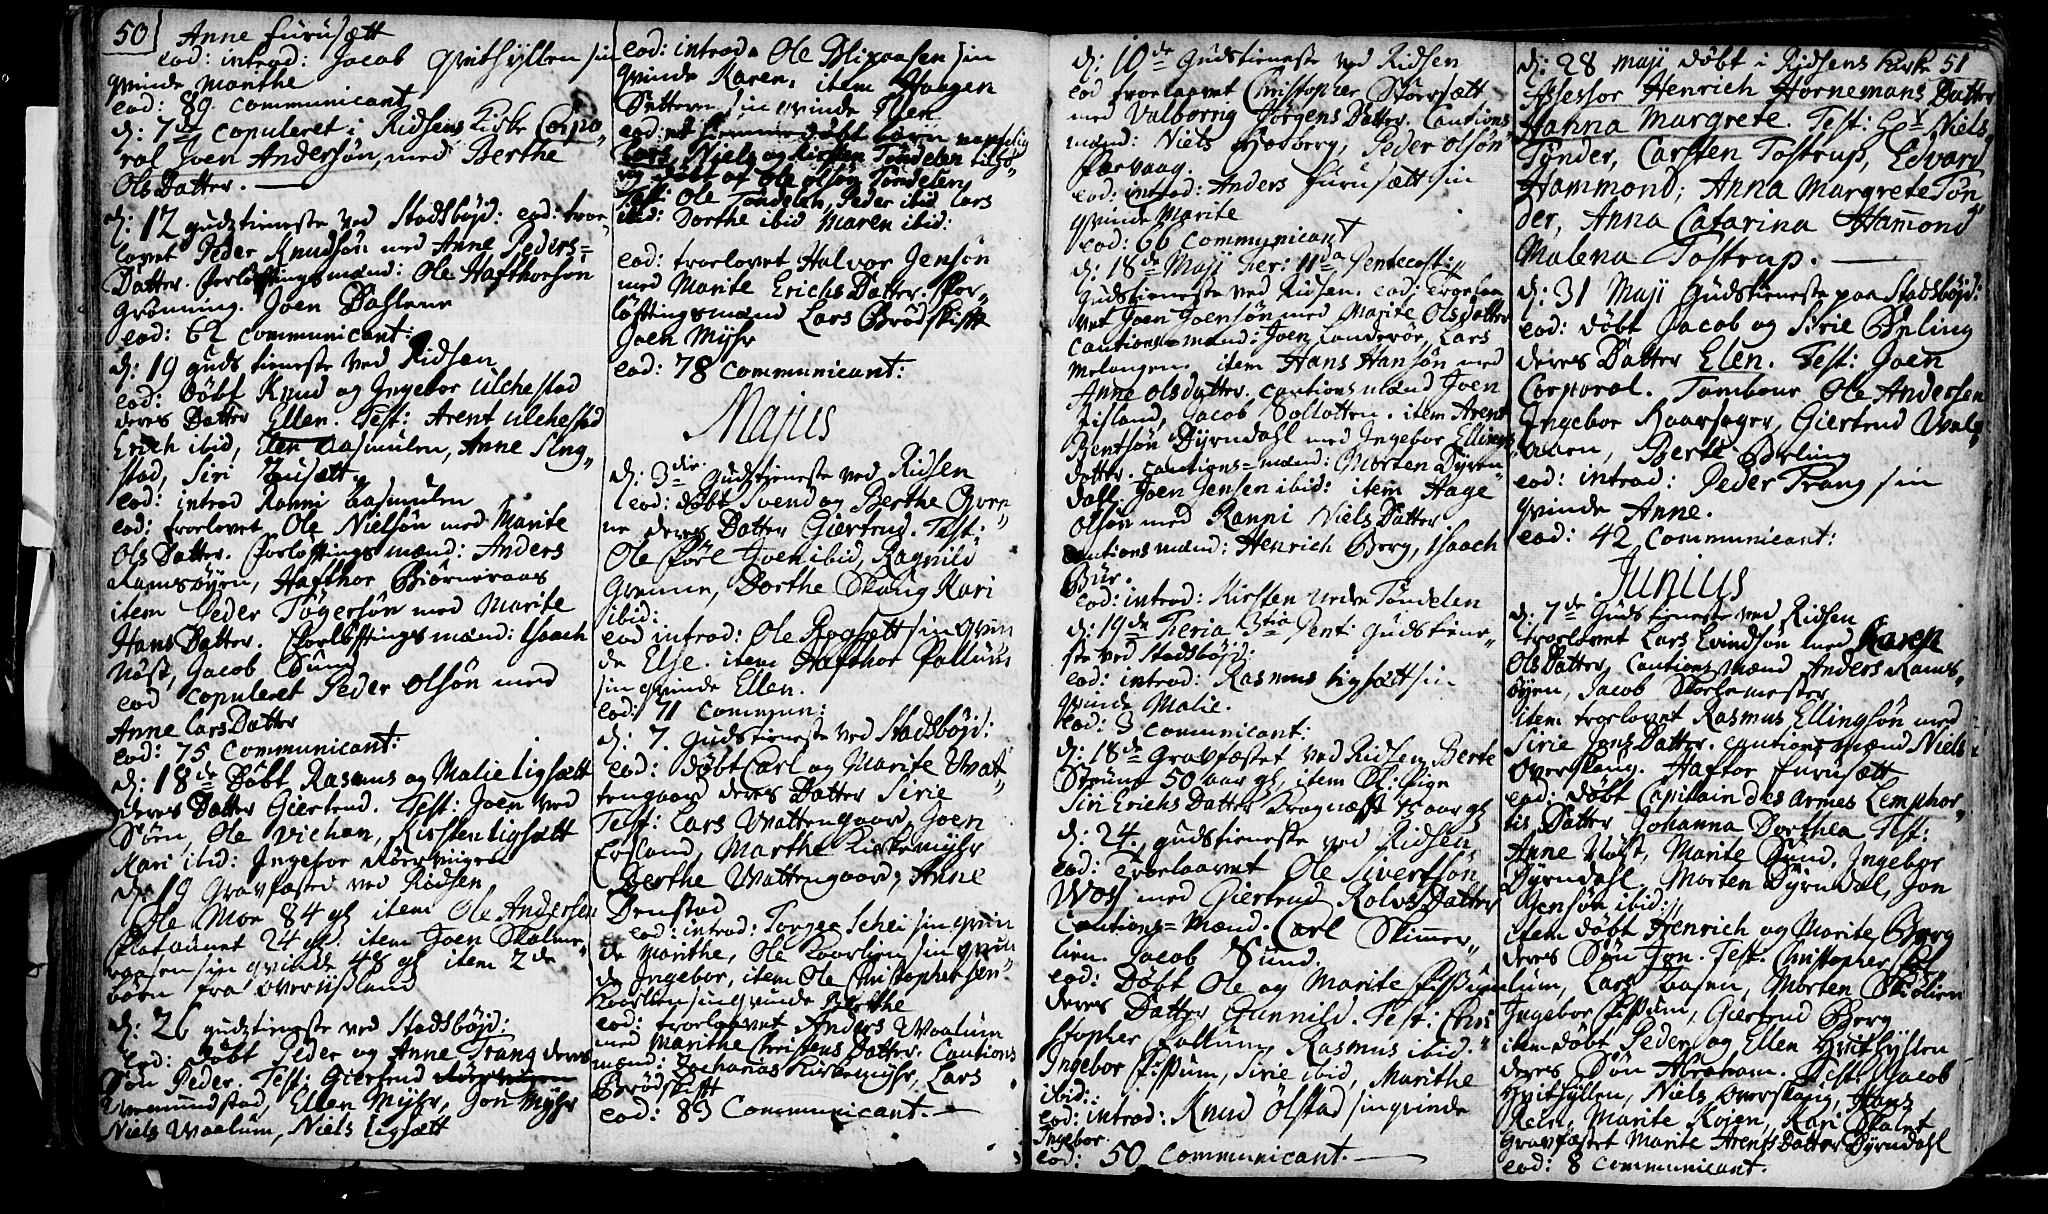 50
Anne Furusætt
eod: introd: Jacob Hvithyllen sin
qvinde Marithe
eod: 89 communicant
d: 7de copuleret i Ridsens Kirke Corpo
ral Joen Andersøn, med Berthe
Ols Datter.
d: 12 gudstieneste ved Stadsbøjd: eod: troe
lovet Peder Knudsøn med Anne Peders=
Datter. Forløftingsmænd: Ole Hafthorsøn
Grønning. Joen Dahlene
eod: 62 communicant:
d: 19 guds tieneste ved Ridsen
eod: døbt Knud og Ingebor Ulchestad
deres Datter Ellen. Test: Arent Ulchestad
Erich ibid, Elen Aasmulen, Anne Sling
stad, Siri Husætt.
eod: introd Ranni Aasmulen
eod: troelovet Ole Nielsøn med Marite
Ols Datter. Forløftings mænd: Anders
Ramsøyen, Hafthor Biørneraas
item Peder Tøgersøn med Marite
Hans Datter. Forløftingsmænd: Isaach
Nøst, Jacob Sund
eod copuleret Peder Olsøn med
Anne Lars Datter
eod: 75 communicant:
d: 18de Døbt Rasmus og Malie Ligsætt
deres Datter Giertrud. Test: Joen ved
Søen, Ole Vichan, Kirsten Ligsætt
Kari ibid: Ingebor Rørviigen
d: 19 Gravfæsted ved Ridsen
Ole Moe 84 gl item Ole Andersen
24 gl: item Joen
sin qvinde 48 gl item 2de
børn fra Overrissland
d: 26 gudstieneste ved Stadsbøjd:
eod: døbt Peder og Anne Trang deres
Søn Peder. Test: Giertrud
Ormundstad, Ellen Myhr, Jon Myhr
Niels Waalum, Niels Ligsætt
eod: introd. Ole Blixaasen sin
qvinde Karen, item Haagen
Sætteren sin qvinde Ellen
eod: døbt børn
Lars, Niels og Kirsten Tøndelen
døbt af Ole Olsøn Tøndelen
Test: Ole Tøndelen, Peder ibid Lars
ibid: Dorthe ibid Maren ibid:
eod: troelovet Halvor Jensøn
med Marite Erichs Datter. For
løftingsmænd Lars Brødskift
Joen Myhr
eod: 78 communicant:
Majus
d: 3die Gudstieneste ved Ridsen
eod: døbt Svend og Berthe Qven
ne deres Datter Giertrud. Test:
Ole Joen ibid, Ragnild
Qvenne, Dorthe Skaug Kari
ibid:
eod introd: Ole Rogsætt sin qvin
de Else. item Hafthor Fallum
sin qvinde Ellen.
eod: 71 commun:
d: 7. Gudstieneste ved Stadsbøjd:
eod: døbt Carl og Marite Wat
tengaard deres Datter Sirie
Test: Lars Wattengaard, Joen
Ersland, Marthe Kirkemyhr
Berthe Wattengaard, Anne
Denstad
eod: introd: Torger Schei sin qvin
de Marithe, Ole Kaarlien sin qvin
de Ingebor, item Ole Christophersen
Kaarlien sin qvinde Berthe
eod: troelaavet Anders Waalum
med Marithe Christens Datter. Cautions
mænd: Zacharias Kirkemyhr, Lars
Brødskift
eod: 83 Communicant.
d: 10de Gudstieneste ved Ridsen
eod troelaavet Christopher Størsætt
med Valborrig Jørgens Datter. Cautions
mænd: Niels Hosberg, Peder Olsøn
Færvaag.
eod: introd: Anders Furusætt sin
qvinde Marite
eod: 66 communicant
d: 18de Maji Fer: IIda Pentecost:
Gudstieneste ved Ridsen. eod: troelaa
vet Joen Joensøn med Marite Olsdatter
cautions=mænd: Joen Landerør, Lars
Melangen. item Hans Hansøn med
Anne Olsdatter. cautions mænd Joen
Risland, Jacob Solløtten. item Arent
Bentsøn Dyrndahl med Ingebor Ellings
datter. cautions=mænd: Morten Dyren
dahl. Joen Jensen ibid: item Aage
Olsøn med Ranni Niels Datter
Cautions mænd: Henrich Berg, Isaach
Bur.
eod: introd: Kirsten Nedre Tøndelen
d: 19de Feria 3tia Pent: Gudstiene
ste ved Stadsbøjd:
eod: introd: Rasmus Ligsætt sin
qvinde Malie.
eod: 3 communicant:
d: 18de Gravfæstet ved Ridsen Berte
Strøms 50 aar gl: item Sl: Pige
Siri Erichs Datter Kragnæss 75 aar gl
d: 24. gudstieneste ved Ridsen
eod: Troelaavet Ole Sivertsøn
Woll med Giertrud Rolvs Datter
Cautions=Mænd. Carl Skimmer
lien. Jacob Sund.
eod: Døbt Ole og Marite Fissum
deres Datter Gunnild. Test: Chri
stopher Fallum, Rasmus ibid:
Ingebor Fissum, Sirie ibid, Marithe
ibid:
eod: introd: Knud Ølstad sin qvinde
Ingebor
eod: 50 communicant.
51
d: 28 Maji døbt i Ridsens Kirke
Assessor Henrich Hornemans Datter
Hanna Margrete. Test: Hr Niels
Tønder, Carsten Tostrup, Edvard
Hammond; Anna Margrete Tøn
der, Anna Catarina Hammond
Malena Tostrup.
d: 31 Maji Gudstieneste paa Stadsbøjd:
eod: døbt Jacob og Sirie Opling
deres Datter Elen. Test: Joen
Corporal. Tambour Ole Andersen
Ingebor Haarsager, Giertrud
Berte Opling
eod: introd: Peder Trang sin
qvinde Anne.
eod: 42 communicant:
Junius
d: 7de Gudstieneste ved Ridsen
troelovet Lars Evindsøn med Karen
Ols Datter, Cautions Mænd Anders Rams
øyen, Jacob Skolemester
item troelovet Rasmus Ellingsøn med
Sirie Jons Datter. cautions mænd Niels
Overskaug. Haftor Furusætt
eod: døbt Capitain des Armes Lemphor
tis Datter Johanna Dorthea Test:
Anne Nøst, Marite Sund, Ingebor
Dyrndahl, Morten Dyrndal, Jon
Jensøn ibid:
item døbt Henrich og Marite Berg
deres Søn Jon. Test. Christopher
lum, Lars Aasen, Morten
Ingebor Fissum, Giertrud Berg
item døbt Peder og Ellen Hvithyllen
deres Søn Abraham. Test: Jacob
Hvithyllen, Niels Overskaug, Hans
Rein, Marite Kojen, Kari Skalet
Gravfæstet Marite Arents Datter Dyrndahl
eod: 8 communicant.